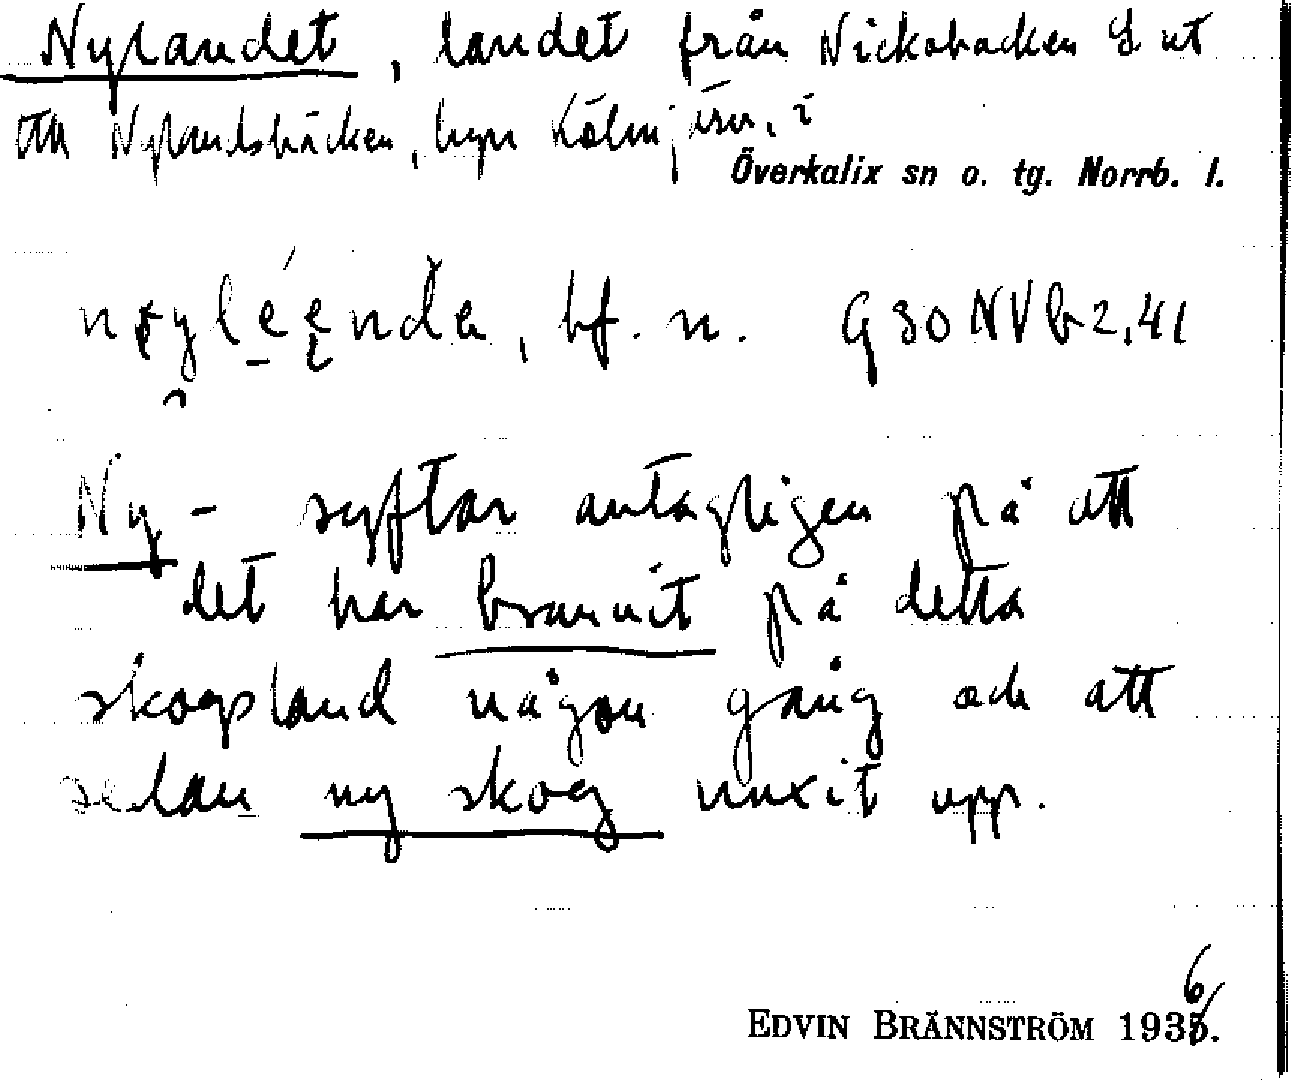 Nylandet, landet från Nickobacken S ut
till Nylandsbäcken, byn Kölmjärv, i
Överkalix sn o. tg. Norrb. l.
bf. n. G 30 NV b 2, 41
Ny- syftar antagligen på att
det har brunnit på detta
skogsland någon gång och att
sedan ny skog vuxit upp.
EDVIN BRÄNNSTRÖM 1936.